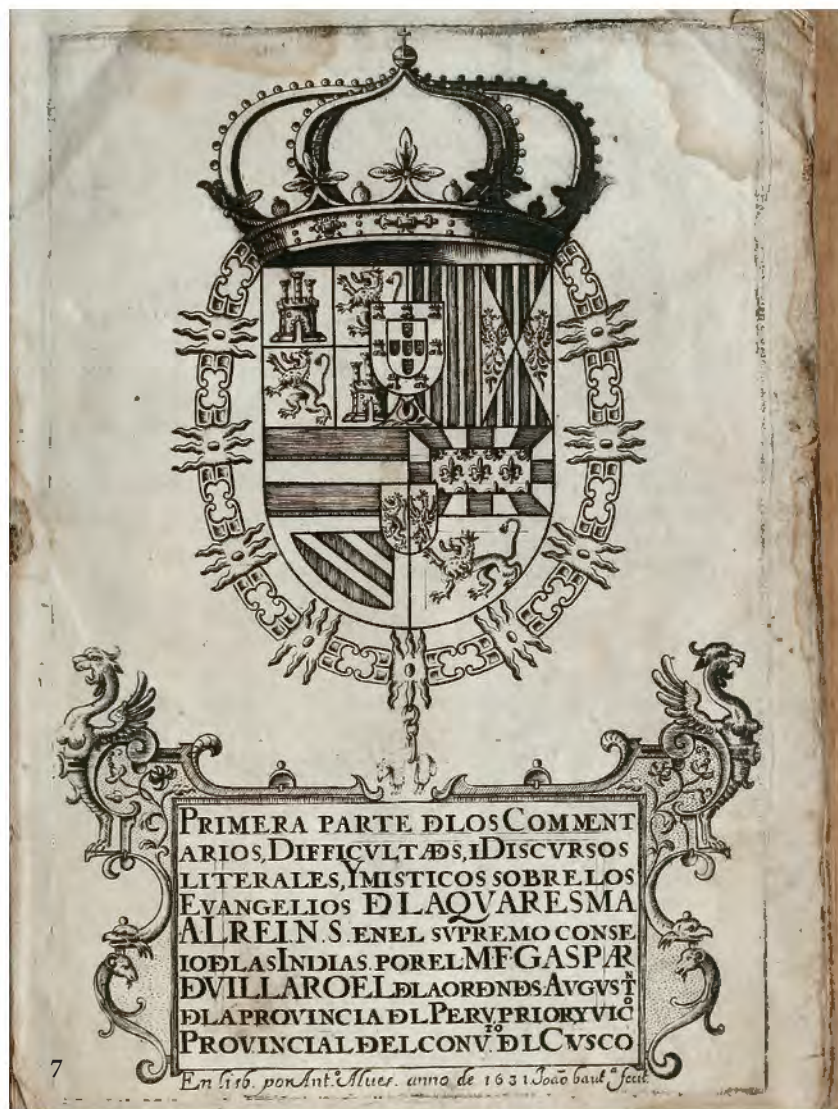 PRIMERA PARTE ĐLOS COMMENT
ARIOS, DIFFICVLTÆĐS, I DISCVRSOS
LITERALES, Y MISTICOS SOBRE LOS
EVANGELIOS Đ LA QVARESMA
AL REI.N.S. EN EL SVPREMO CONSE
IO ĐLAS INDIAS. POR EL MFGASPÆR
ĐVILLAROEL ĐLA ORĐN ĐS AVGVSTN
ĐLA PROVINCIA ĐL PERV, PRIOR Y VICO
PROVINCIAL ĐEL CONVTO. ĐL CVSCO
En lisb. por Ant.º Alues. anno de 1631 João baut.ª fecit.
7